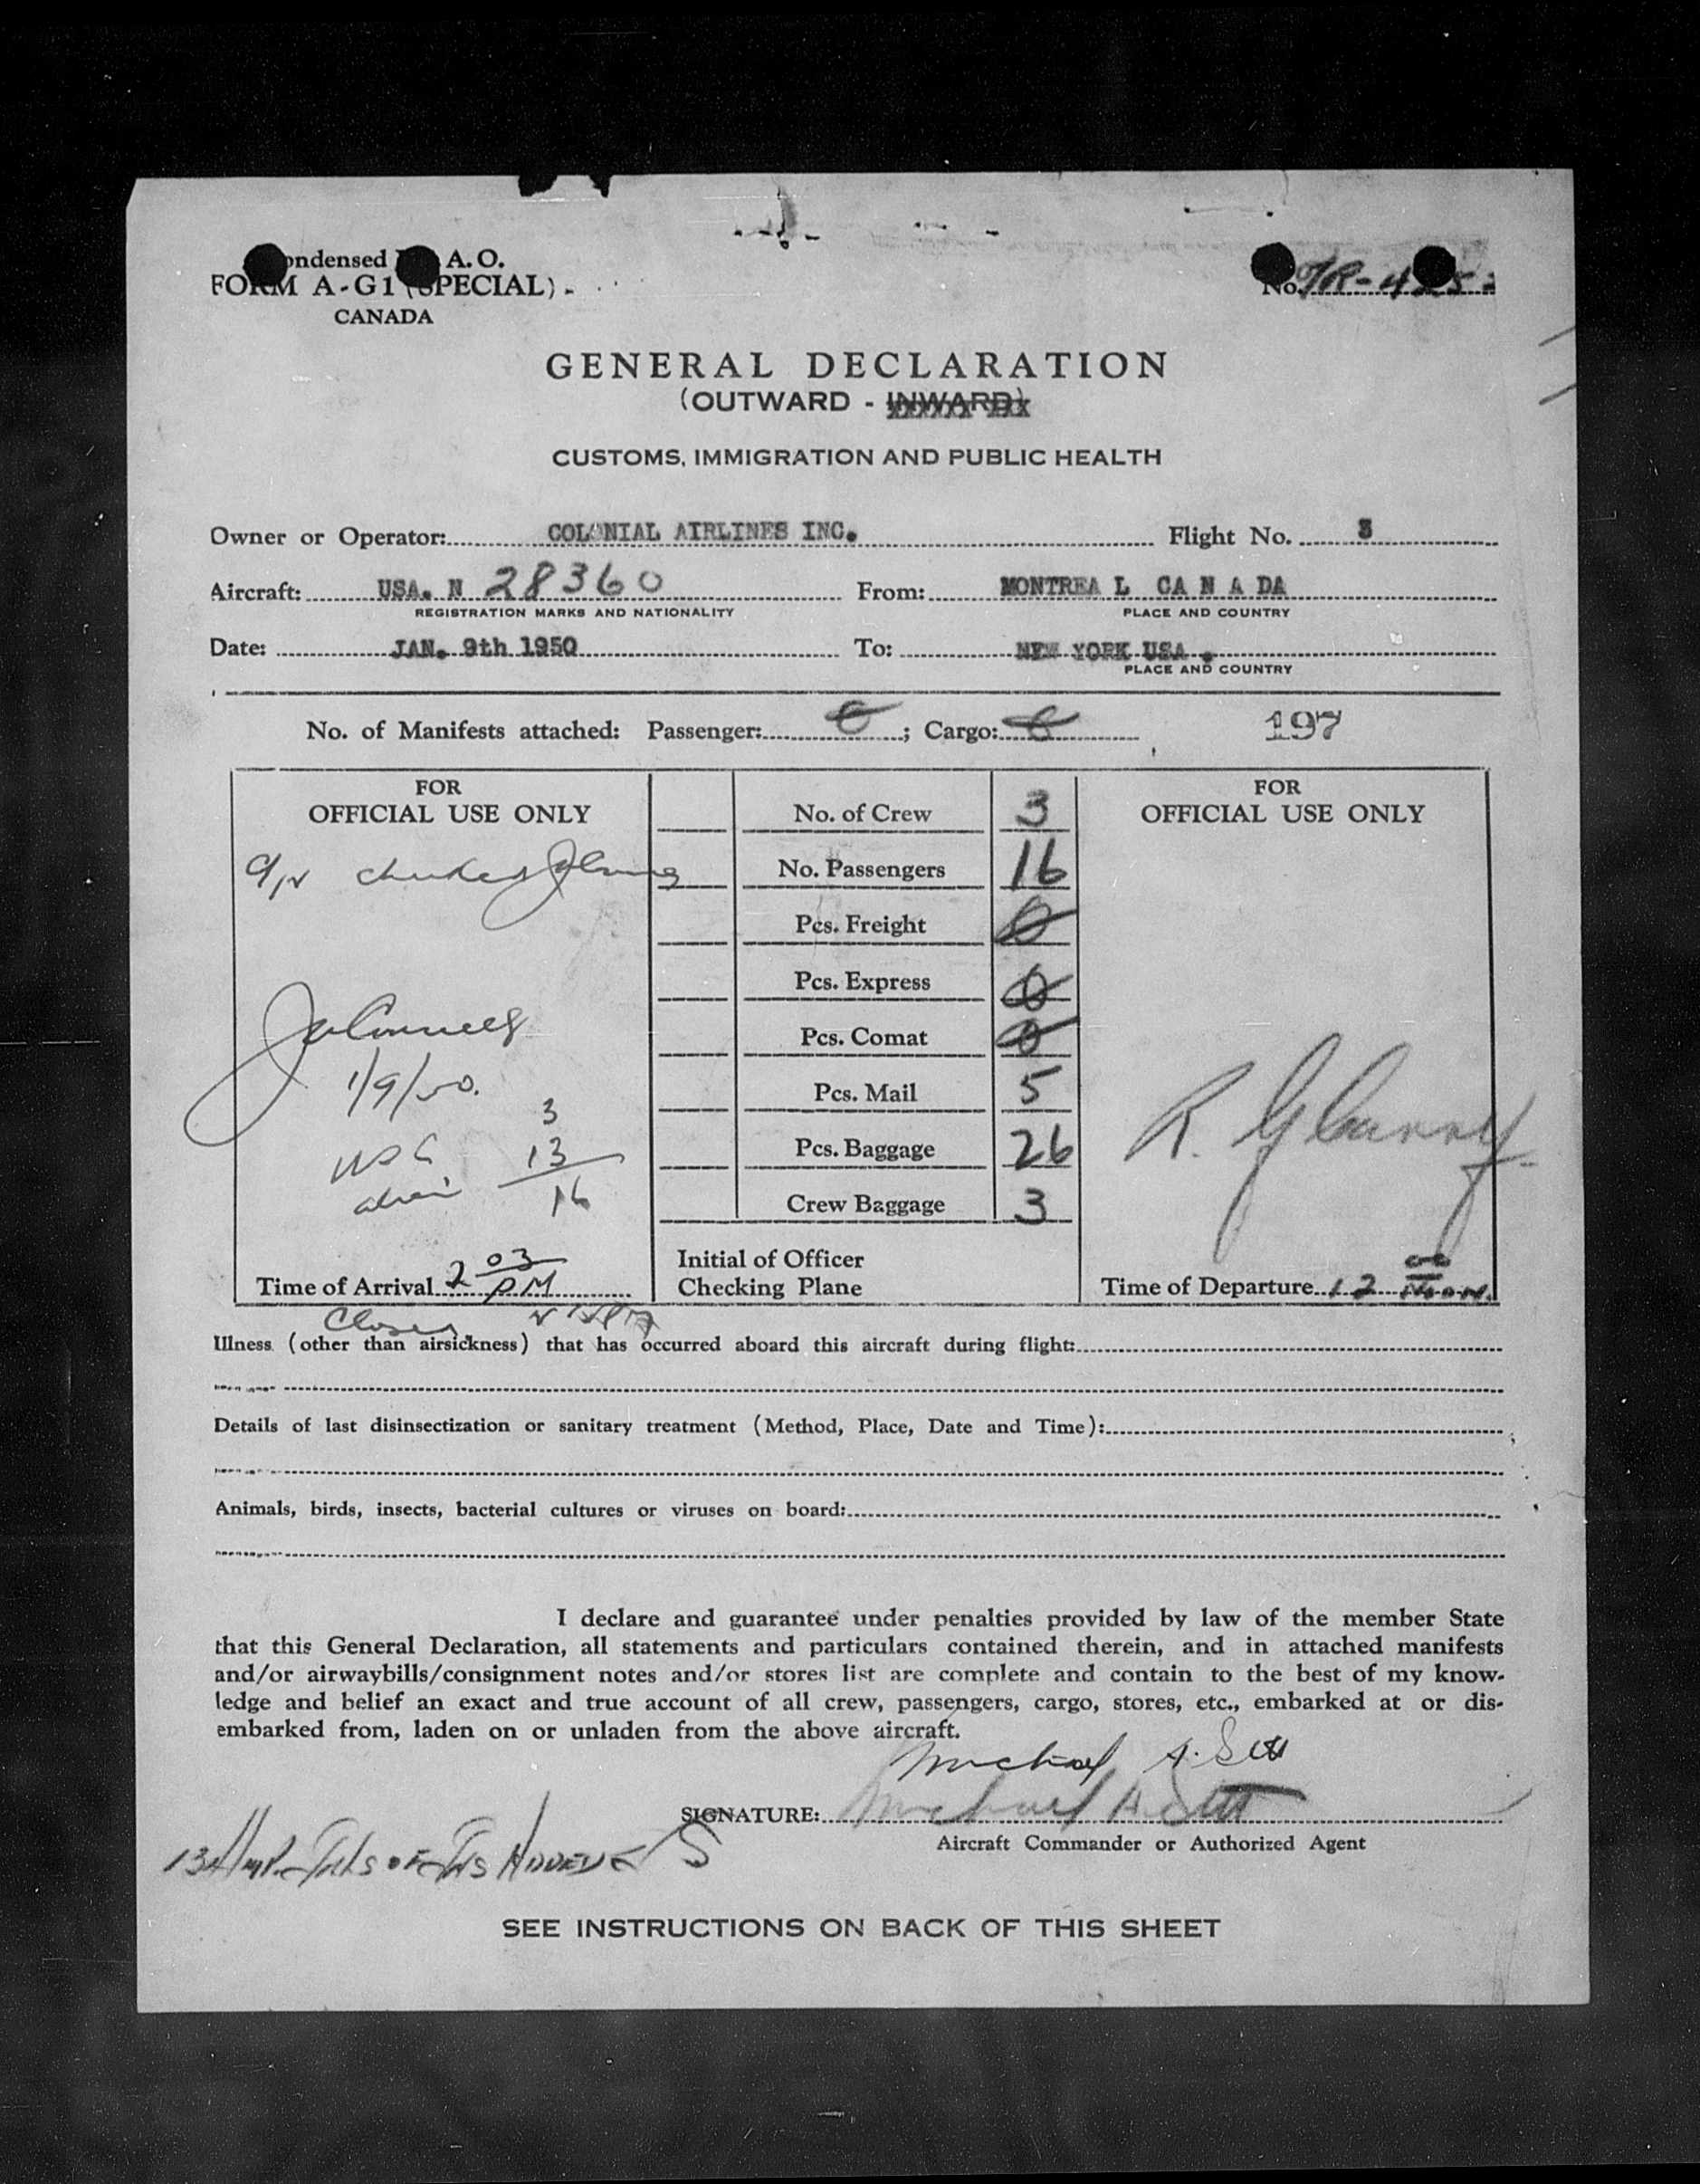 ondensed A. O. No. TR-4
FORM A-G1 (SPECIAL)
CANADA
GENERAL DECLARATION
(OUTWARD - INWARD)
CUSTOMS, IMMIGRATION AND PUBLIC HEALTH
Owner or Operator: COLONIAL AIRLINES INC. Flight No. 3
Aircraft: USA. N 28360 From: MONTREAL CANADA
REGISTRATION MARKS AND NATIONALITY PLACE AND COUNTRY
Date: JAN. 9th 1950 To: NEW YORK USA .
PLACE AND COUNTRY
No. of Manifests attached: Passenger: 0 ; Cargo: 0 197
FOR
OFFICIAL USE ONLY
checked
1/9/50.
3
13
16
Time of Arrival 2 03 PM
Closed
No. of Crew 3
No. Passengers 16
Pcs. Freight 0
Pcs. Express 0
Pcs. Comat 0
Pcs. Mail 5
Pcs. Baggage 26
Crew Baggage 3
Initial of Officer
Checking Plane
FOR
OFFICIAL USE ONLY
R.
Time of Departure 12 00 Noon.
Illness (other than airsickness) that has occurred aboard this aircraft during flight:
Details of last disinsectization or sanitary treatment (Method, Place, Date and Time):
Animals, birds, insects, bacterial cultures or viruses on board:
I declare and guarantee under penalties provided by law of the member State
that this General Declaration, all statements and particulars contained therein, and in attached manifests
and/or airwaybills/consignment notes and/or stores list are complete and contain to the best of my know-
ledge and belief an exact and true account of all crew, passengers, cargo, stores, etc., embarked at or dis-
embarked from, laden on or unladen from the above aircraft.
Michael A.
SIGNATURE: Michael A
Aircraft Commander or Authorized Agent
13
SEE INSTRUCTIONS ON BACK OF THIS SHEET